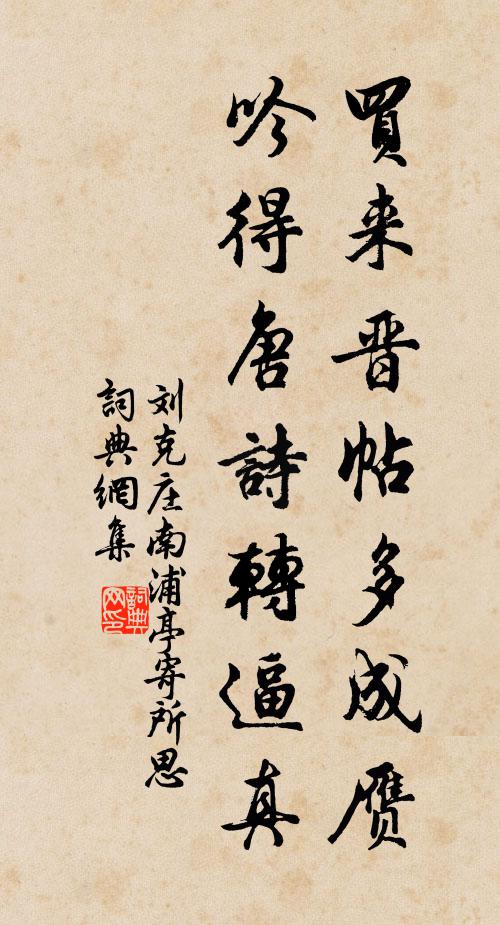 買来晋帖多成贋
吟得唐詩轉逼真
刘克庄南浦亭寄所思
詞典網集
詞典网印